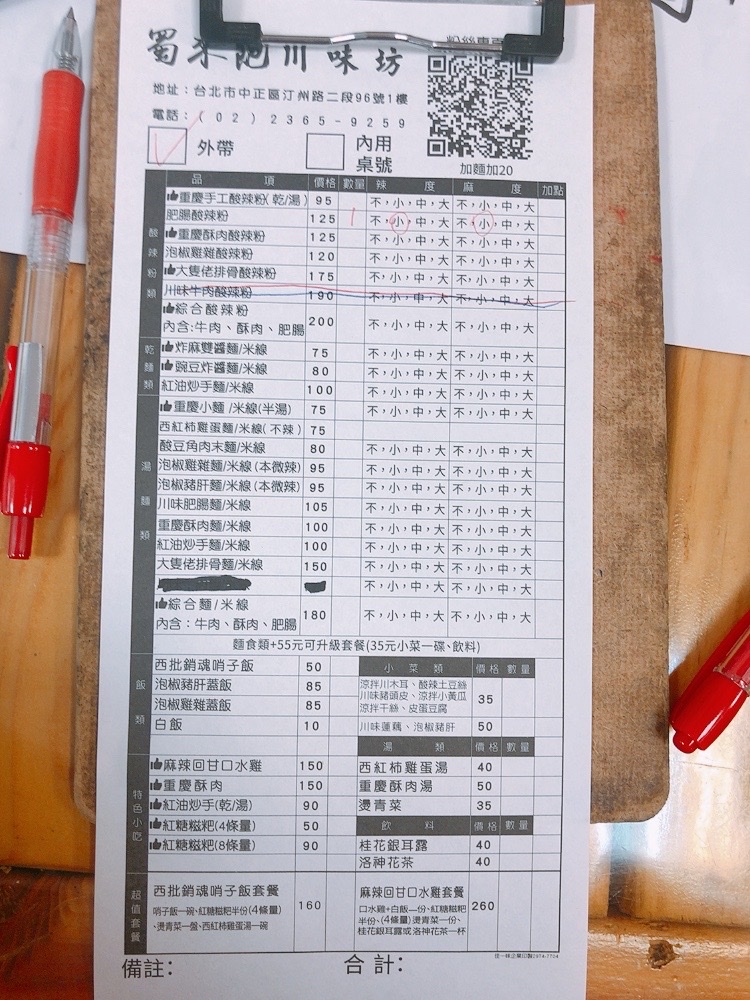 蜀來飽川味坊
地址：台北市中正區汀州路二段96號1樓
電話：(02)2365-9259
外帶
內用
桌號
加麵加20
品 項 價格 數量 辣 度 麻 度 加點
酸辣粉類
重慶手工酸辣粉(乾/湯) 95 不，小，中，大 不，小，中，大
肥腸酸辣粉 125 1 不，小，中，大 不，小，中，大
重慶酥肉酸辣粉 125 不，小，中，大 不，小，中，大
泡椒雞雜酸辣粉 120 不，小，中，大 不，小，中，大
大隻佬排骨酸辣粉 175 不，小，中，大 不，小，中，大
川味牛肉酸辣粉 190 不，小，中，大 不，小，中，大
綜合酸辣粉
內含:牛肉、酥肉、肥腸 200 不，小，中，大 不，小，中，大
乾麵類
炸麻雙醬麵/米線 75 不，小，中，大 不，小，中，大
豌豆炸醬麵/米線 80 不，小，中，大 不，小，中，大
紅油炒手麵/米線 100 不，小，中，大 不，小，中，大
湯麵類
重慶小麵/米線(半湯) 75 不，小，中，大 不，小，中，大
西紅柿雞蛋麵/米線(不辣) 75
酸豆角肉末麵/米線 80 不，小，中，大 不，小，中，大
泡椒雞雜麵/米線(本微辣) 95 不，小，中，大 不，小，中，大
泡椒豬肝麵/米線(本微辣) 95 不，小，中，大 不，小，中，大
川味肥腸麵/米線 105 不，小，中，大 不，小，中，大
重慶酥肉麵/米線 100 不，小，中，大 不，小，中，大
紅油炒手麵/米線 100 不，小，中，大 不，小，中，大
大隻佬排骨麵/米線 150 不，小，中，大 不，小，中，大
不，小，中，大 不，小，中，大
綜合麵/米線
內含：牛肉、酥肉、肥腸 180 不，小，中，大 不，小，中，大
麵食類+55元可升級套餐(35元小菜一碟、飲料)
飯類
西批銷魂哨子飯 50
泡椒豬肝蓋飯 85
泡椒雞雜蓋飯 85
白飯 10
小菜類 價格 數量
涼拌川木耳、酸辣土豆絲
川味豬頭皮、涼拌小黃瓜
涼拌干絲、皮蛋豆腐 35
川味蓮藕、泡椒豬肝 50
湯 類 價格 數量
西紅柿雞蛋湯 40
重慶酥肉湯 50
燙青菜 35
飲 料 價格 數量
桂花銀耳露 40
洛神花茶 40
特色小吃
麻辣回甘口水雞 150
重慶酥肉 150
紅油炒手(乾/湯) 90
紅糖糍粑(4條量) 50
紅糖糍粑(8條量) 90
超值套餐
西批銷魂哨子飯套餐
哨子飯一碗、紅糖糍粑半份(4條量)
、燙青菜一盤、西紅柿雞蛋湯一碗 160
麻辣回甘口水雞套餐
口水雞+白飯一份、紅糖糍粑
半份、(4條量)燙青菜一份、
桂花銀耳露或洛神花茶一杯 260
備註：
合計：